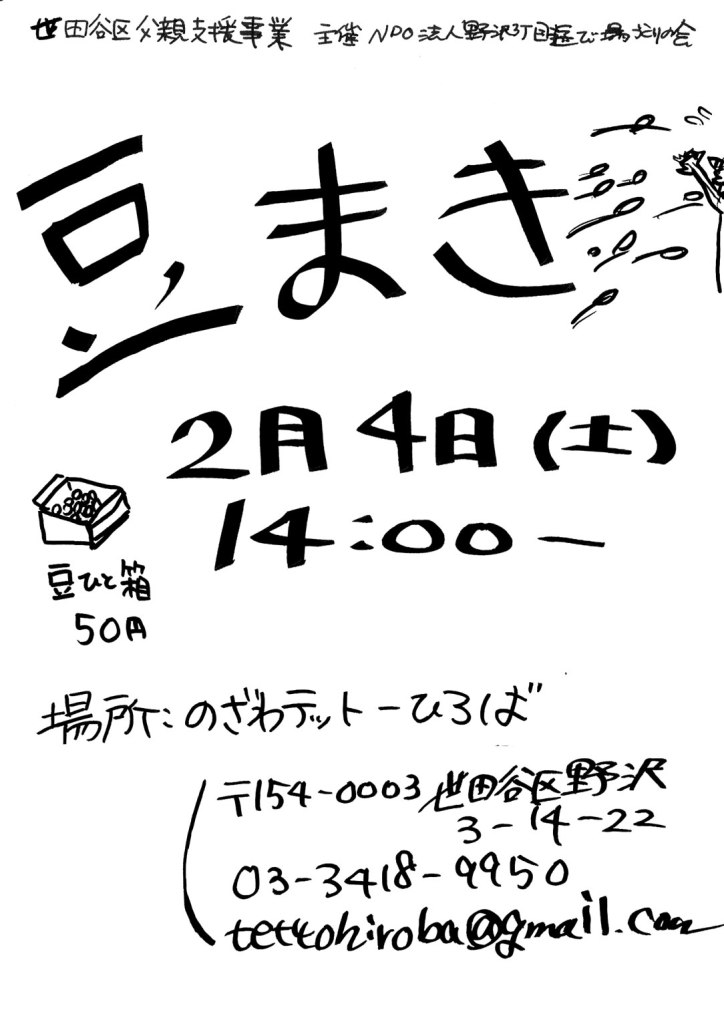 世田谷区父親支援事業 主催 NPO法人野沢3丁目遊び場づくりの会
豆まき
2月4日(土)
14:00ー
豆ひと箱
50円
場所:のざわテットーひろば
〒154-0003 世田谷区野沢
3-14-22
03-3418-9950
tettohiroba@gmail.com